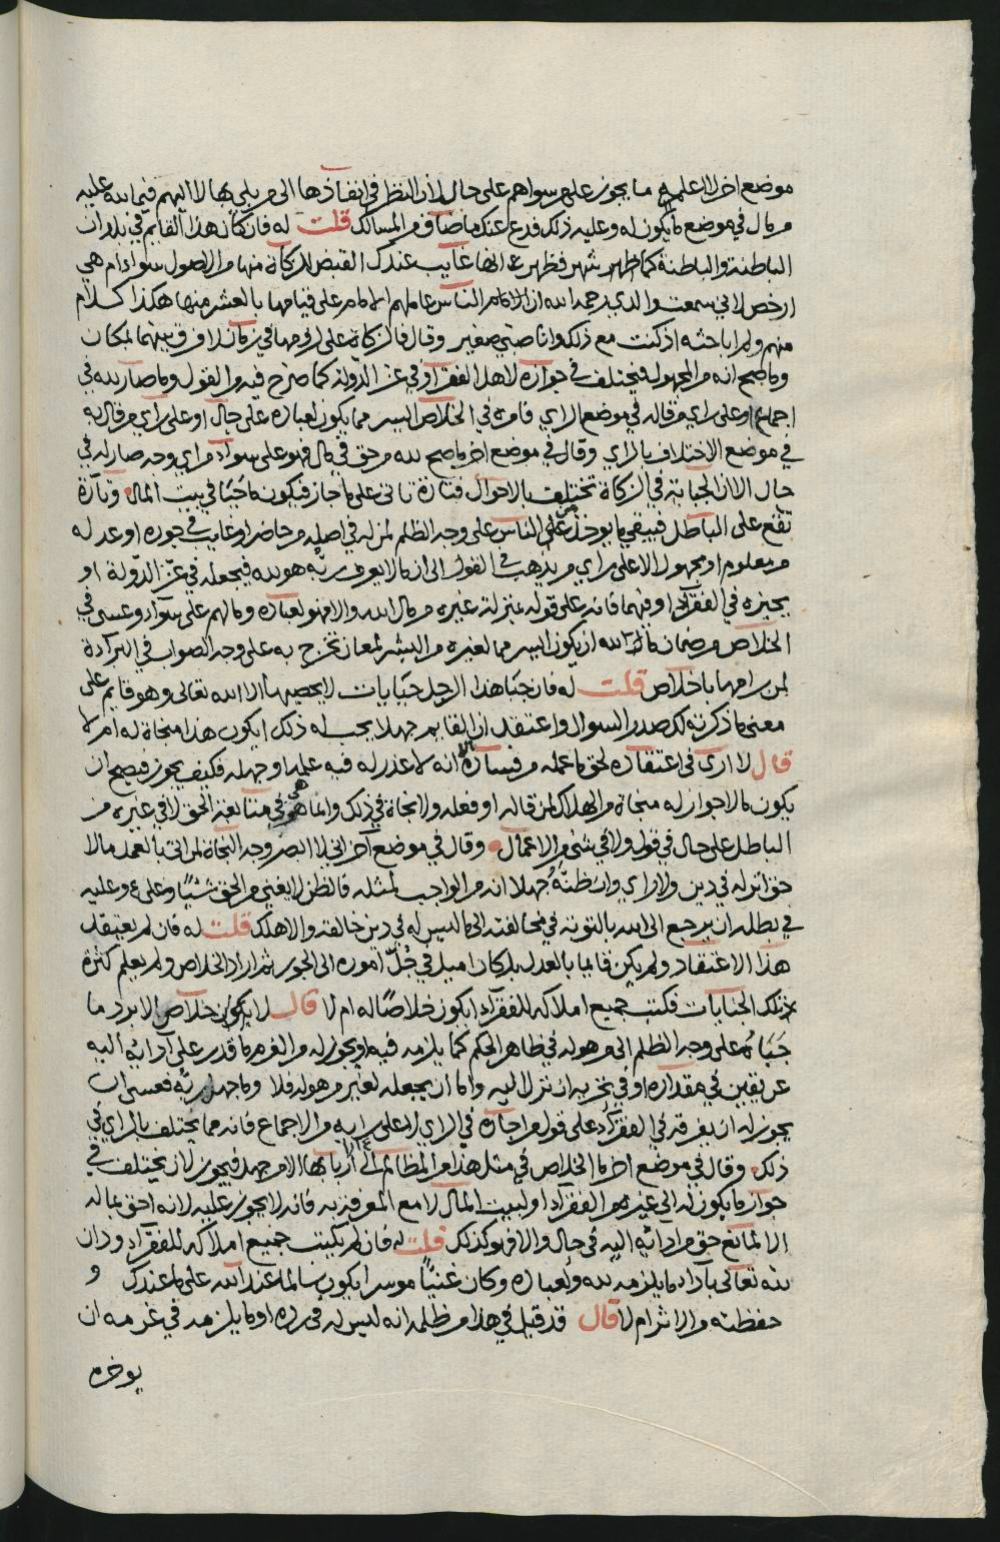 موضع اخر لا اعلمه ما يجوز عليهم سواهم على حال لان النظر في انفاذها الى من بلي بها لا اليهم فيما لله عليه
من مال في موضع ما يكون له وعليه ذلك فدع عنك ما ضاق من المسالك قلت له فان كان هذا القايم في بلدان
الباطنة والباطنة كما ظهر شهر فظهر انها غايب عندك القبض للزكاة منها من الاصول سواء ام هي
ارخص لاني سمعت والدي رحمه الله ان الامام الناس عاملهم الامام على قيامها بالعشر منها هكذا كلام
منهم ولم اباحثه اذ كنت مع ذلك وانا صبي صغير وقال فالزكاة على لزومها في زمان لا فرق بينهما لمكان
وما صح انه من المجهول فيختلف في جوازه لاهل الفقر او في عز الدولة كما صرح فيه من القول وما صار لله في
اجماع او على راي من قاله في موضع الراي فامره في الخلاص ايسر مما يكون لعباده على حال او على راي من قال به
في موضع الاختلاف بالراي وقال في موضع اخر ما صح لله من حق في مال فهو على سواء من اي وجه صار له في
حال الا ان الجباية في الزكاة تختلف بالاحوال فتارة تاتي على ما جاز فيكون ما جبا في بيت المال وتارة
تقع على الباطل فيبقي ما يوخذ من على الناس على وجه الظلم لمن له في اصله من حاضر او غايب في جوره او عدله
من معلوم او مجهول الا على راي من يذهب في القول الى ان ما لا يعرف ربه هو لله فيجعله في عز الدولة او
يجيزه في الفقراء او فيهما فانه على قوله بمنزلة غيره من مال الله والا فهو لعباده وما لهم على سواء وعسى في
الخلاص من ضمان ما لله ان يكون ايسر مما لغيره من البشر لمعان تخرج به على وجه الصواب في البراءة
لمن رامها باخلاص قلت له فان جبا هذا الرجل جبايات لا يحصيها الا الله تعالى وهو قايم على
معنى ما ذكرته لك صدر السوال واعتقد ان القايم جهلا يجب له ذلك ايكون هذا منجاة له ام لا
قال لا ارى في اعتقاده لحق ما عمله من فساده الا انه لا عذر له فيه علمه او جهله فكيف يجوز فيصح ان
يكون ما لا جواز له منجاة من الهلاك لمن قاله او فعله ولا نجاة في ذلك وانما هي في متابعة الحق لا في غيره من
الباطل على حال في قول ولا في شي من الاعمال وقال في موضع آخر اني لا ابصر وجه النجاة لمن اتى بالعمد مالا
حق انزله في دين ولا راي وان ظنه جهلا انه من الواجب لمثله فالظن لا يغني من الحق شيئا وعليه
في بطله ان يرجع الى الله بالتوبة في مخالفته الى ما ليس له في دين خالقه والا هلك قلت له فان لم يعتقد
هذا الاعتقاد ولم يكن قايما بالعدل بل كان اميل في جل اموره الى الجور ثم اراد الخلاص ولم يعلم كثرة
تلك الجبايات فكتب جميع املاكه للفقراء ايكون خلاصا له ام لا قال لا يكون خلاص الا برد ما
جباه على وجه الظلم الى من هو له في ظاهر الحكم كما يلزمه فيه او يجوز له من الغرم ما قدر على ادائه اليه
عن يقين في مقداره او في تحريه ان نزل اليه واما ان يجعله لغير من هو له فلا وما جهل ربه فعسى ان
يجوز له ان يفرقه في الفقراء على قول من اجازه في الراي لا على رايه من الاجماع فانه مما يختلف بالراي في
ذلك وقال في موضع اخر ما الخلاص في مثل هذا من المظالم الا الى اربابها الا من جهل فيجوز لان يختلف في
جواز ما يكون له الى غيره من الفقراء او لبيت المال لا مع المعرفة به فانه لا يجوز عليه لانه احق بماله
الا لمانع حق من ادائه اليه في حال والا فهو كذلك قلت له فان لم يكتب جميع املاكه للفقراء ودان
لله تعالى باداء ما يلزمه لله ولعباده وكان غنيا موسرا ايكون سالما عند الله على ما عندك و
حفظته من الاثر ام لا قال قد قيل في هذا من ظلمه انه ليس له في رده او ما يلزمه في غرمه ان
يوخره